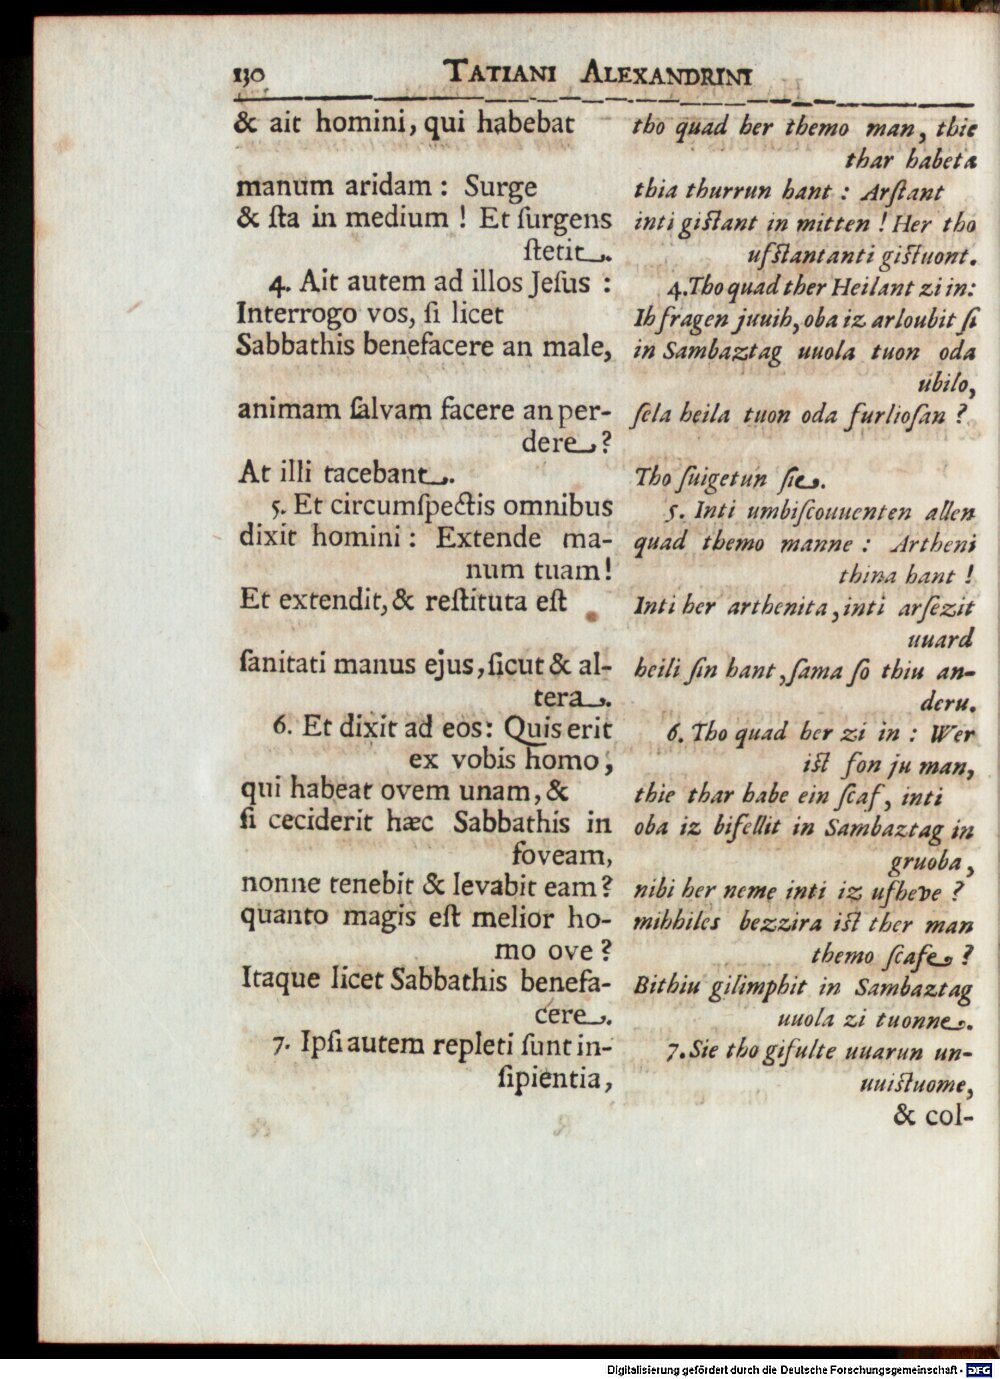 130 TATIANI ALEXANDRINI
& ait homini, qui habebat
manum aridam : Surge
& ſta in medium ! Et ſurgens
ſtetit.
4. Ait autem ad illos Jeſus :
Interrogo vos, ſi licet
Sabbathis benefacere an male,
animam ſalvam facere an per-
dere ?
At illi tacebant.
5. Et circumſpectis omnibus
dixit homini : Extende ma-
num tuam!
Et extendit, & reſtituta eſt
ſanitati manus ejus, ſicut & al-
tera.
6. Et dixit ad eos: Quis erit
ex vobis homo,
qui habeat ovem unam, &
ſi ceciderit hæc Sabbathis in
foveam,
nonne tenebit & levabit eam ?
quanto magis eſt melior ho-
mo ove ?
Itaque licet Sabbathis benefa-
cere.
7. Ipſi autem repleti ſunt in-
ſipientia,
tho quad her themo man, thie
thar habeta
thia thurrun hant : Arſtant
inti giſtant in mitten ! Her tho
ufſtantanti giſtuont.
4. Tho quad ther Heilant zi in:
Ih fragen juuih, oba iz arloubit ſi
in Sambaztag uuola tuon oda
ubilo,
ſela heila tuon oda furlioſan ?
Tho ſuigetun ſie.
5. Inti umbiſcouuenten allen
quad themo manne : Artheni
thina hant !
Inti her arthenita, inti arſezit
uuard
heili ſin hant, ſama ſo thiu an-
deru.
6. Tho quad her zi in : Wer
iſt fon ju man,
thie thar habe ein ſcaf, inti
oba iz bifellit in Sambaztag in
gruoba,
nibi her neme inti iz ufheve ?
mihhiles bezzira iſt ther man
themo ſcafe ?
Bithiu gilimphit in Sambaztag
uuola zi tuonne.
7. Sie tho gifulte uuarun un-
uuiſtuome,
& col-
Digitalisierung gefördert durch die Deutsche Forschungsgemeinschaft - DFG